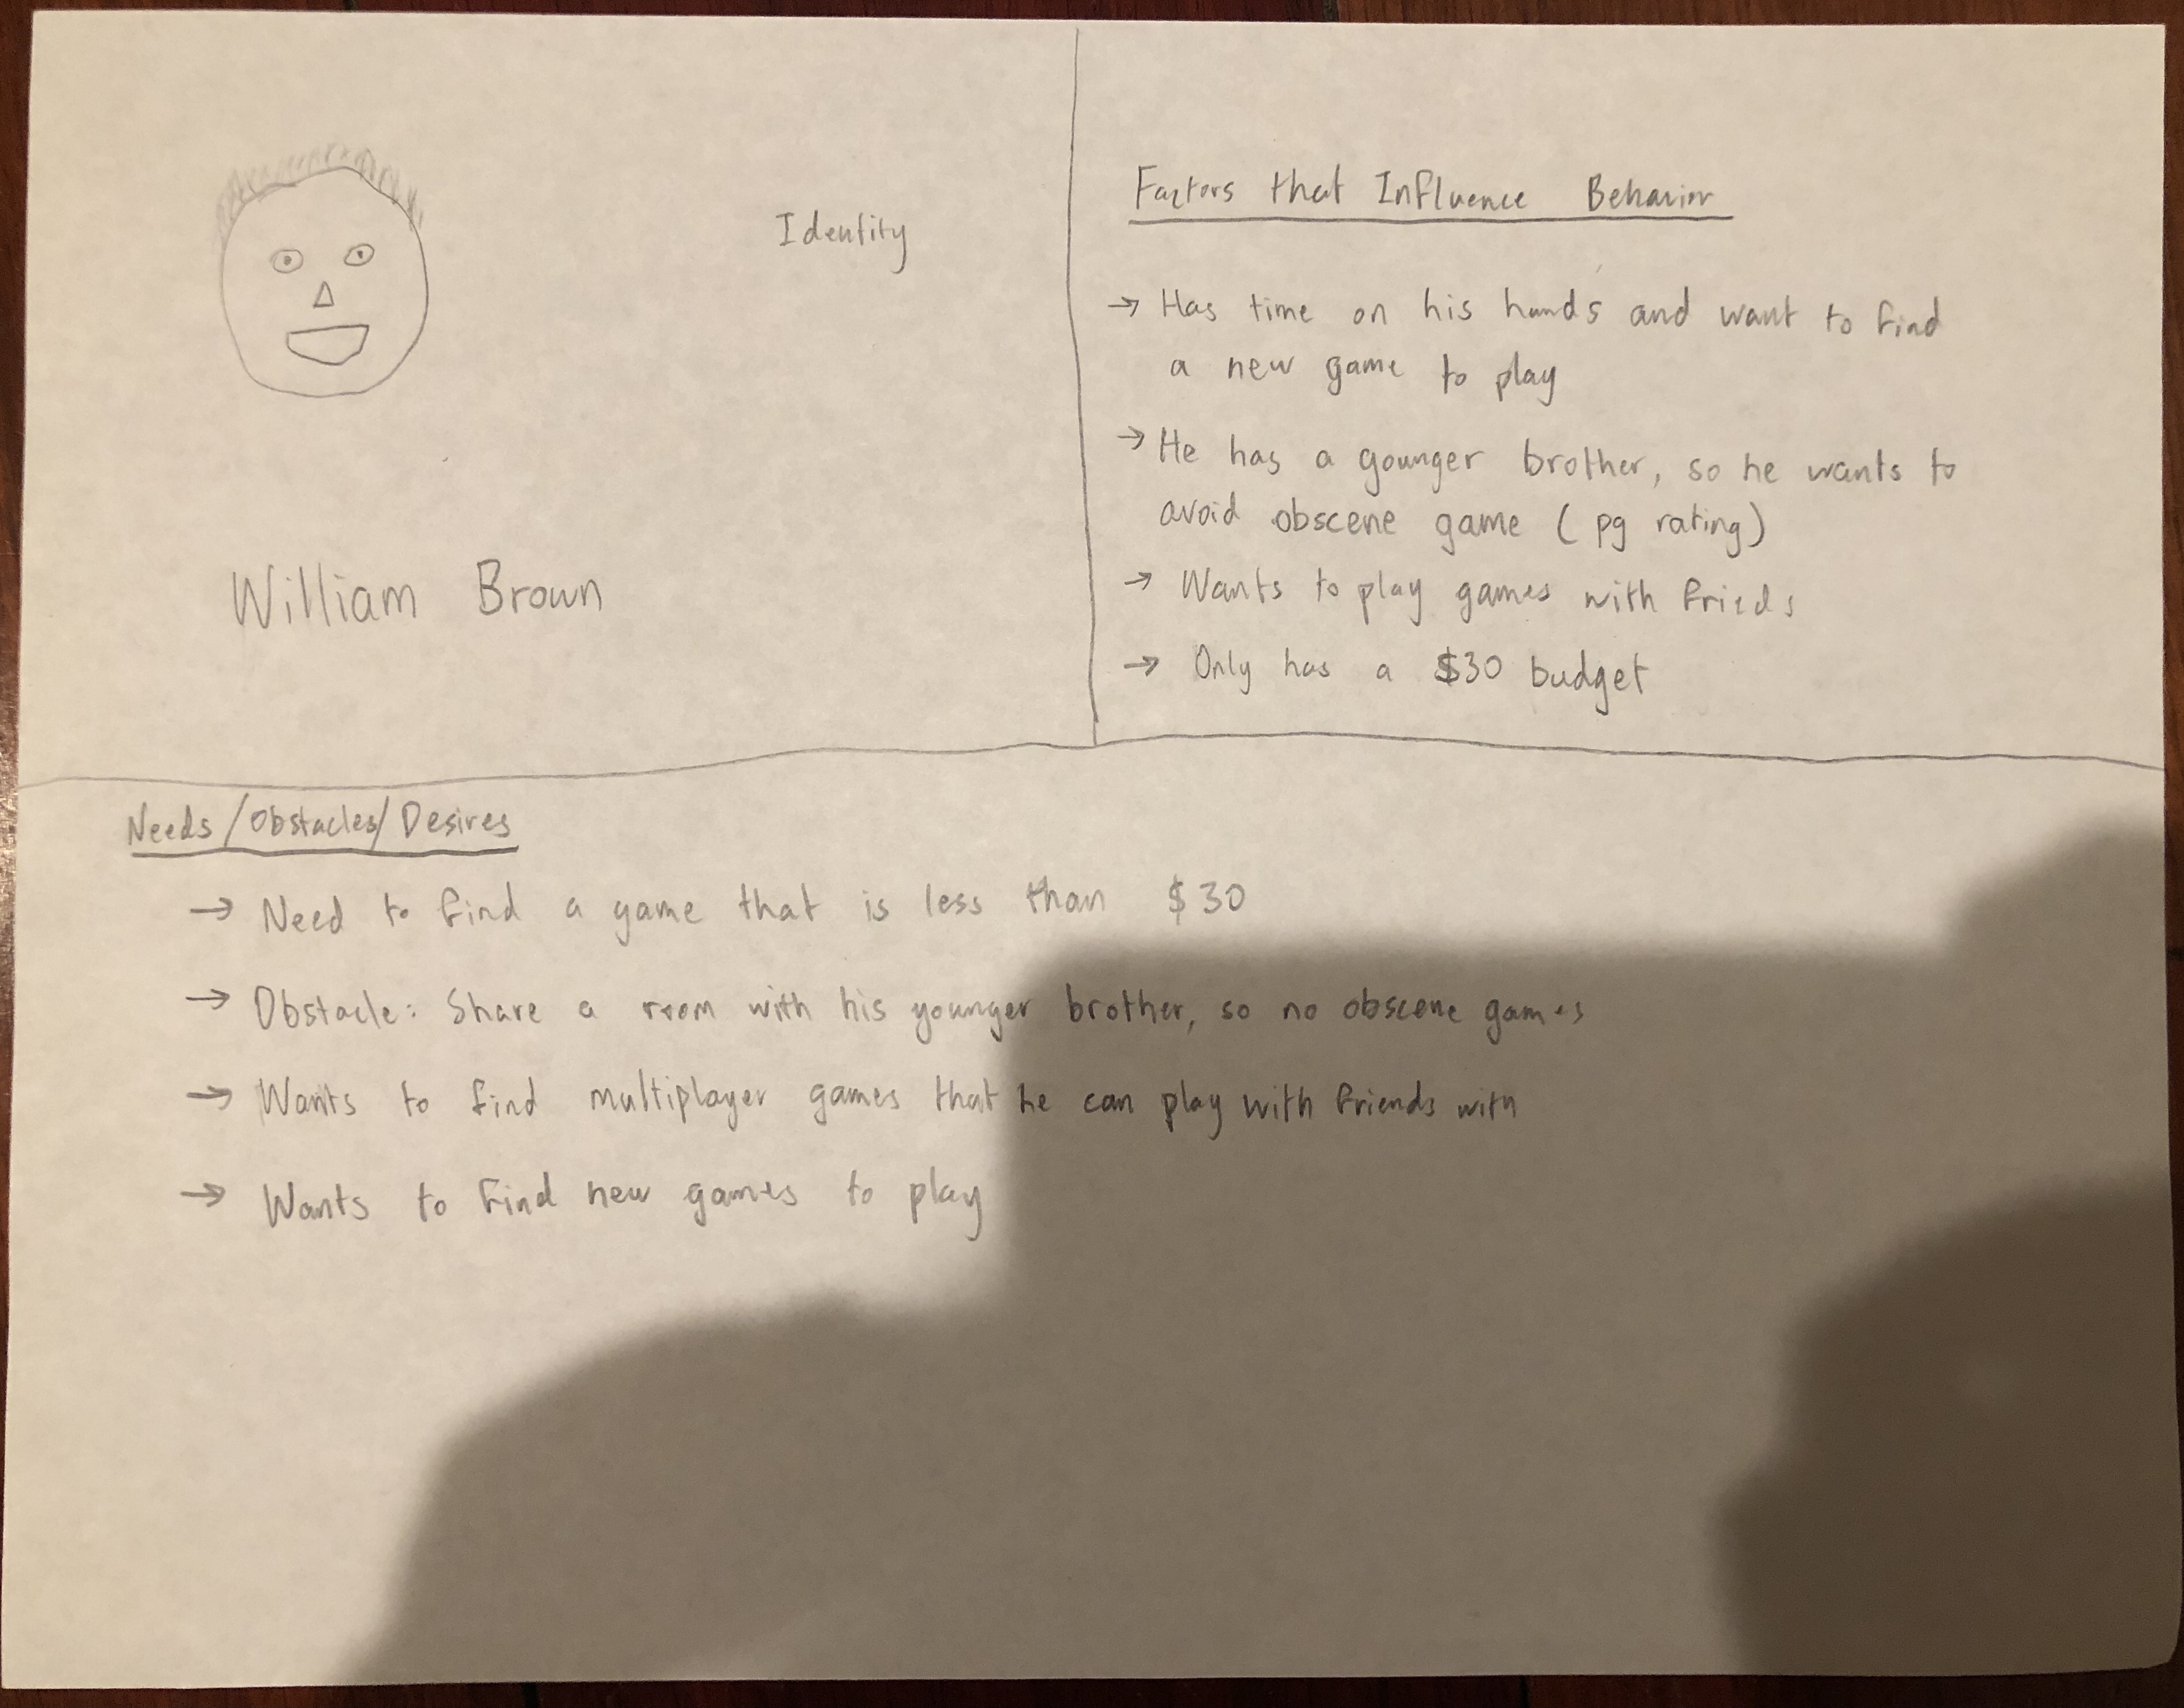 Identity
William Brown
Factors that Influence Behavior
→ Has time on his hands and want to find
a new game to play
→ He has a younger brother, so he wants to
avoid obscene game (pg rating)
→ Wants to play games with frieds
→ Only has a $30 budget
Needs/Obstacles/Desires
→ Need to find a game that is less than $30
→ Obstacle: Share a room with his younger brother, so no obscene games
→ Wants to find multiplayer games that he can play with friends with
→ Wants to find new games to play